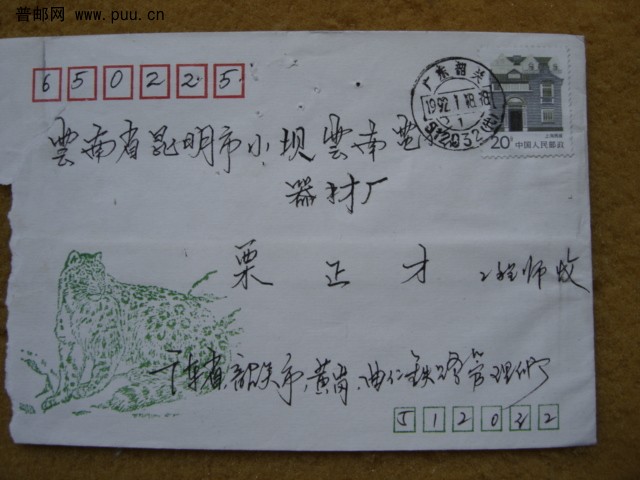 普邮网 www.puu.cn
650225
雲南省昆明市小坝雲南电
器材厂
栗正才 工程师收
广东省韶关市黄岗曲仁铁路管理所
512032
广东韶关
1992.1.18.18
512032
上海民居
20分 中国人民邮政